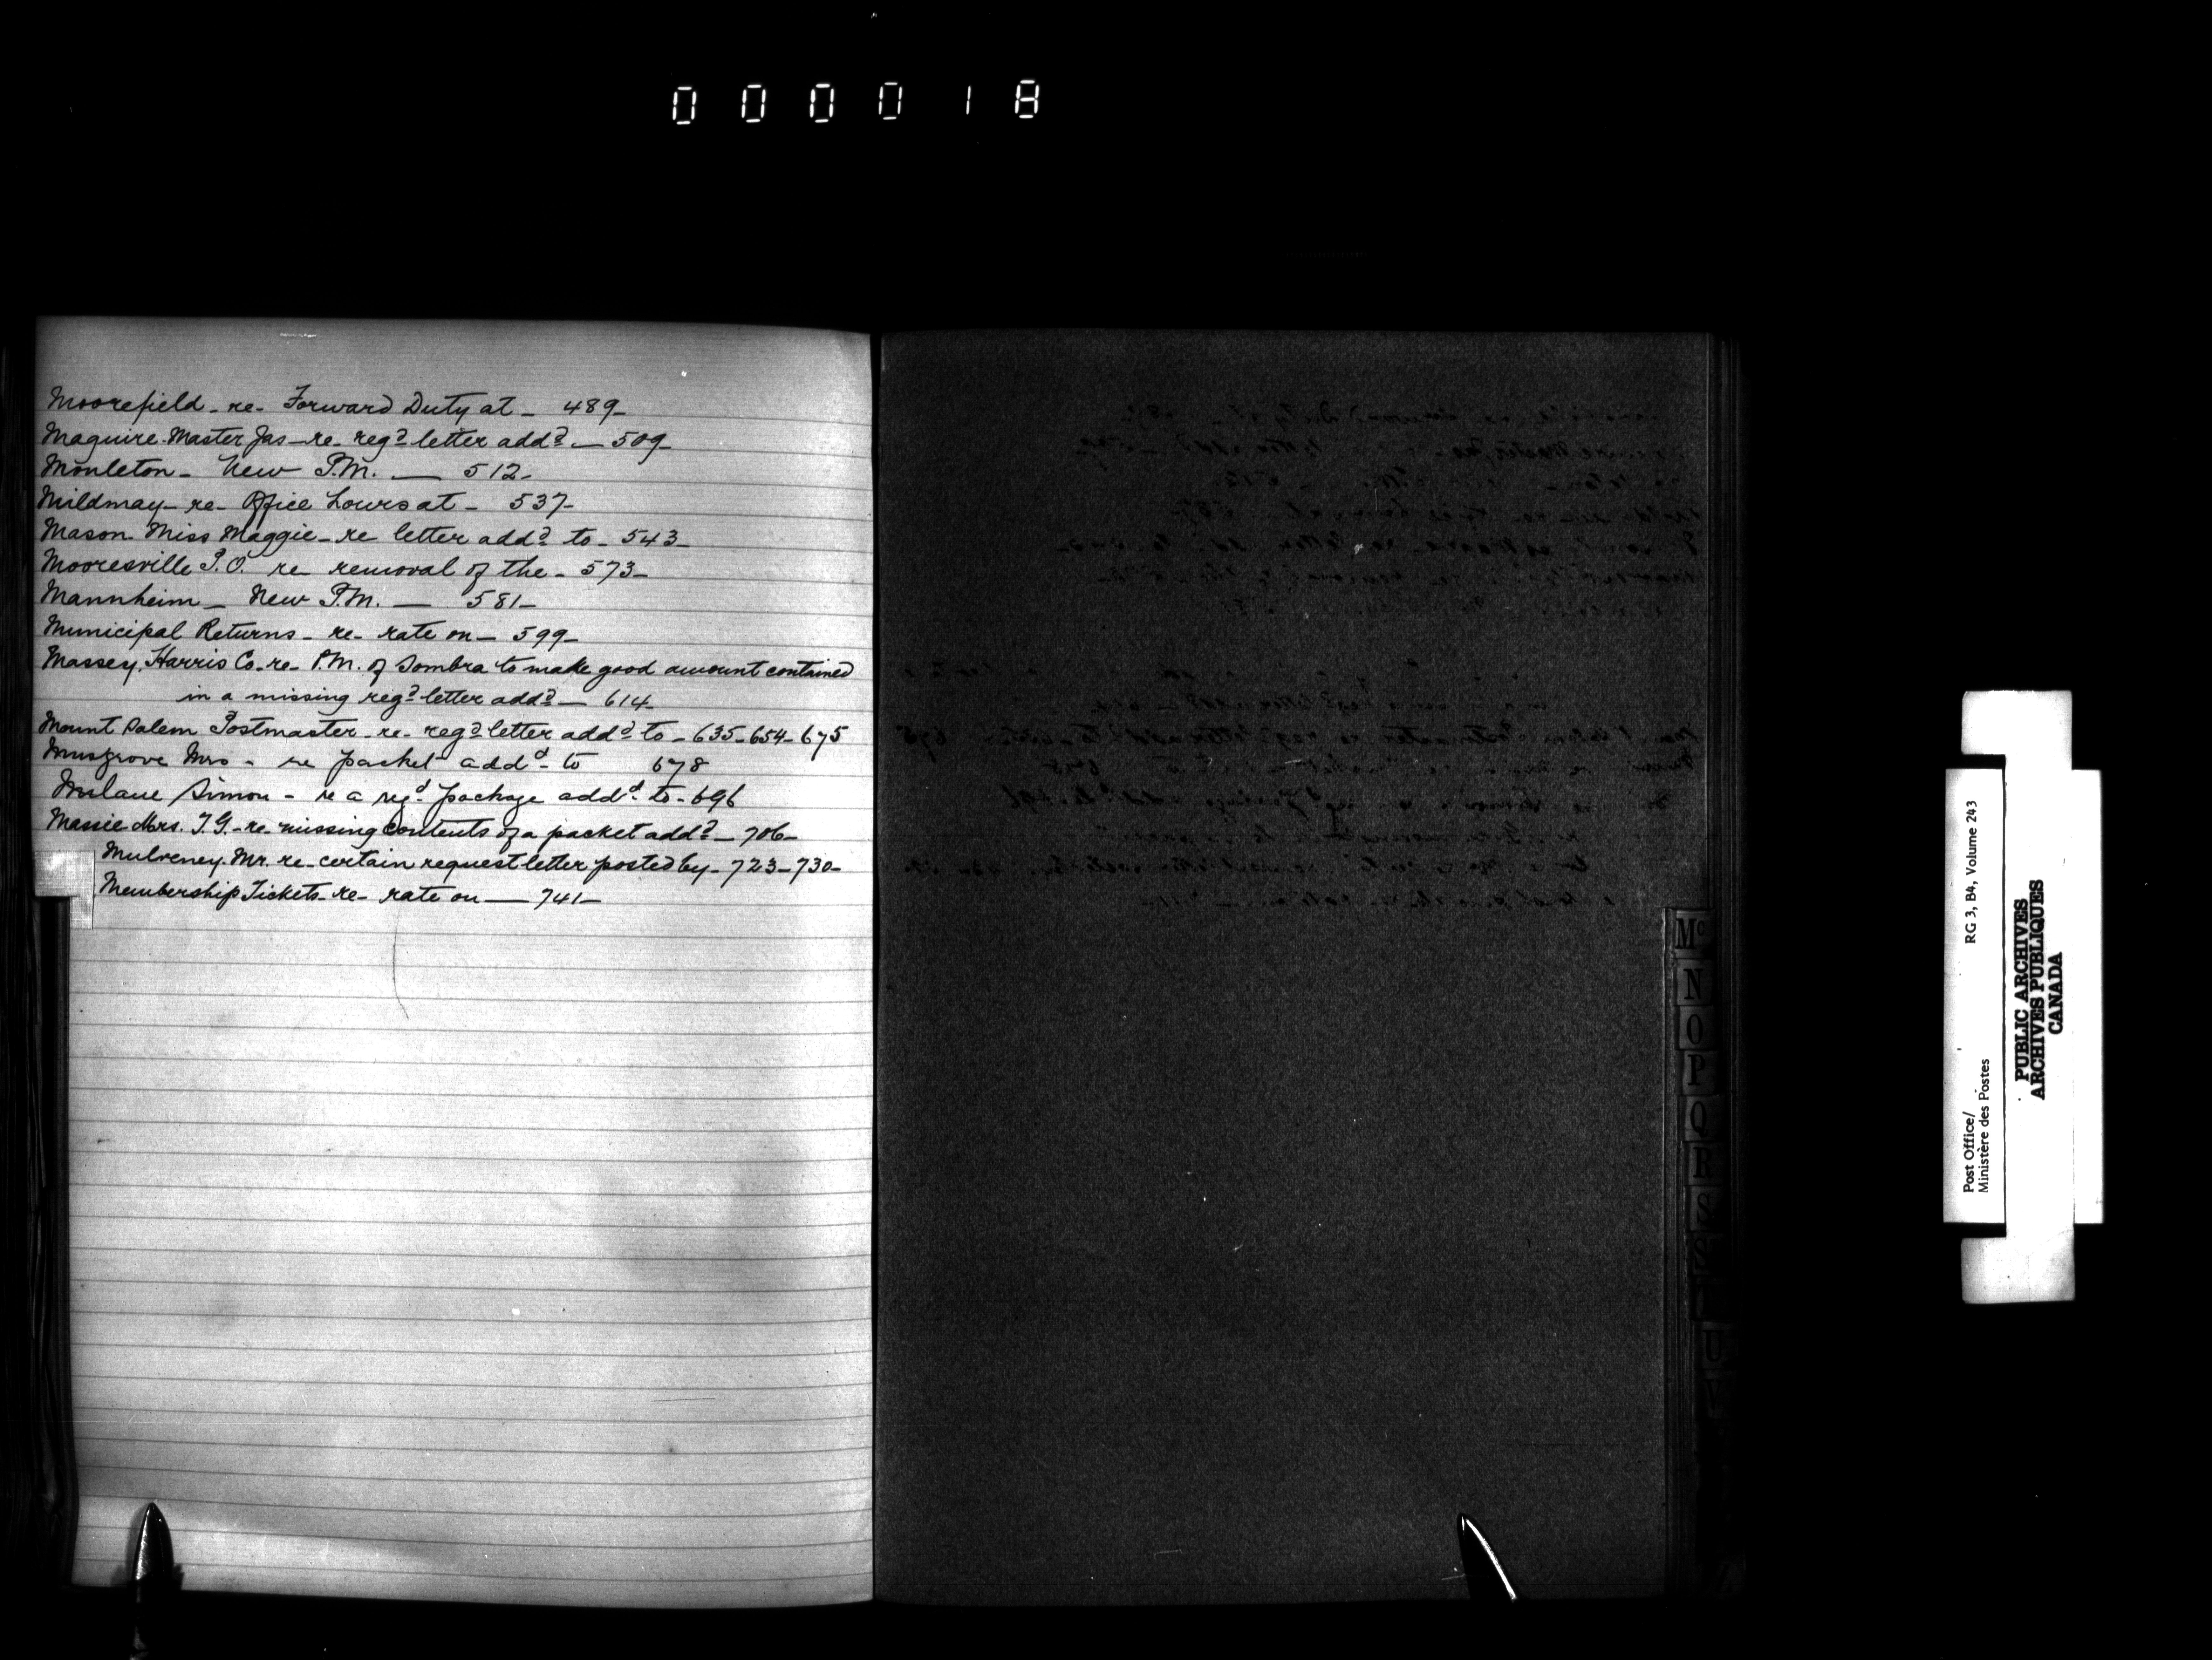 000018
Moorefield - re - Forward Duty at - 489 -
Maguire Master Jas - re - regd letter addd - 509 -
Monleton - New P.M. — 512 -
Mildmay - re - Office hours at - 537 -
Mason Miss Maggie - re letter addd to - 543 -
Mooresville P.O. re removal of the - 573 -
Mannheim - New P.M. — 581 -
Municipal Returns - re - rate on - 599 -
Massey Harris Co. - re - P.M. of Sombra to make good amount contained
in a missing regd letter addd — 614 -
Mount Salem Postmaster - re - regd letter addd to - 635 - 654 - 675
Musgrove Mrs - re packet addd - to 678
Simon - re a regd package addd to - 696
Massie Mrs. T.G. - re - missing contents of a packet addd - 706 -
Mulveney Mr. re - certain request letter posted by - 723 - 730 -
Membership Tickets - re - rate on — 741 -
Mc
N
O
P
Q
R
S
T
U
Post Office/
Ministère des Postes
RG 3, B4, Volume 243
PUBLIC ARCHIVES
ARCHIVES PUBLIQUES
CANADA